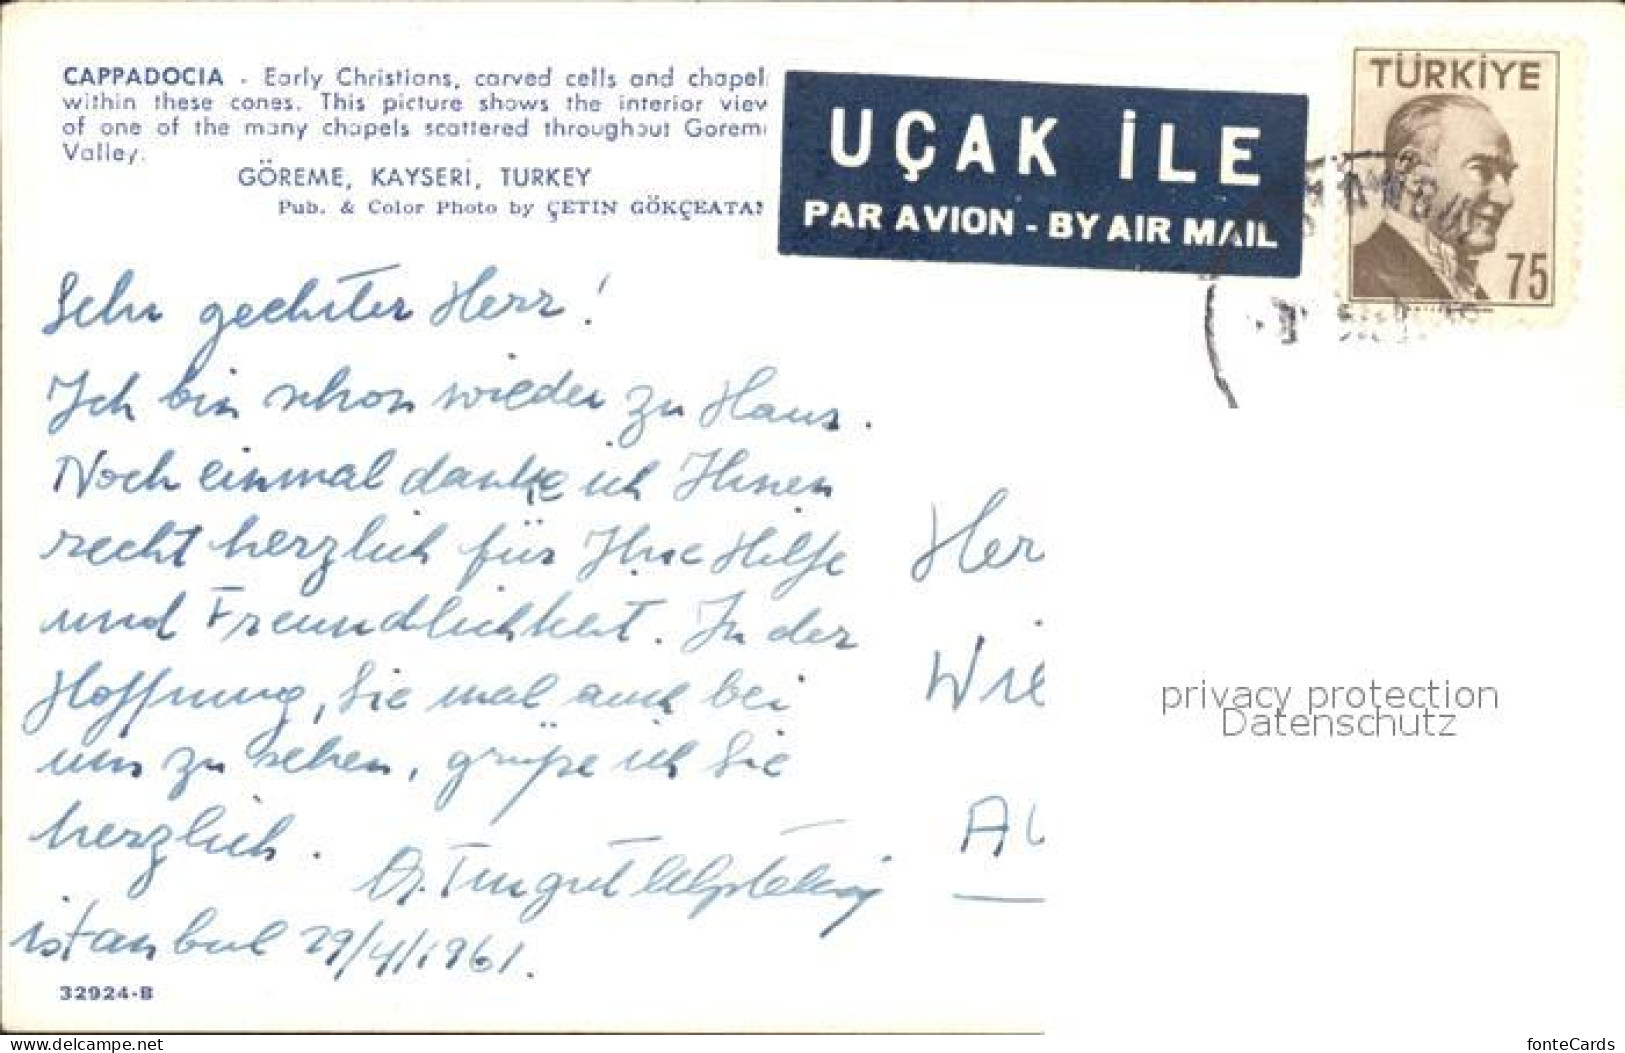 CAPPADOCIA - Early Christians, carved cells and chapel
within these cones. This picture shows the interior view
of one of the many chapels scattered throughout Goreme
Valley.
GÖREME, KAYSERİ, TURKEY
Pub. & Color Photo by ÇETİN GÖKÇEATA
UÇAK İLE
PAR AVION - BY AIR MAIL
TÜRKİYE
75
Sehr geehrter Herr!
Ich bin schon wieder zu Haus.
Noch einmal danke ich Ihnen
recht herzlich für Ihre Hilfe
und Freundlichkeit. In der
Hoffnung, Sie mal auch bei
uns zu sehen, grüße ich Sie
herzlich.
Dr. Turgut
istanbul 29/4/1961.
32924-B
Her
Wie
A
privacy protection
Datenschutz
www.delcampe.net
fonteCards